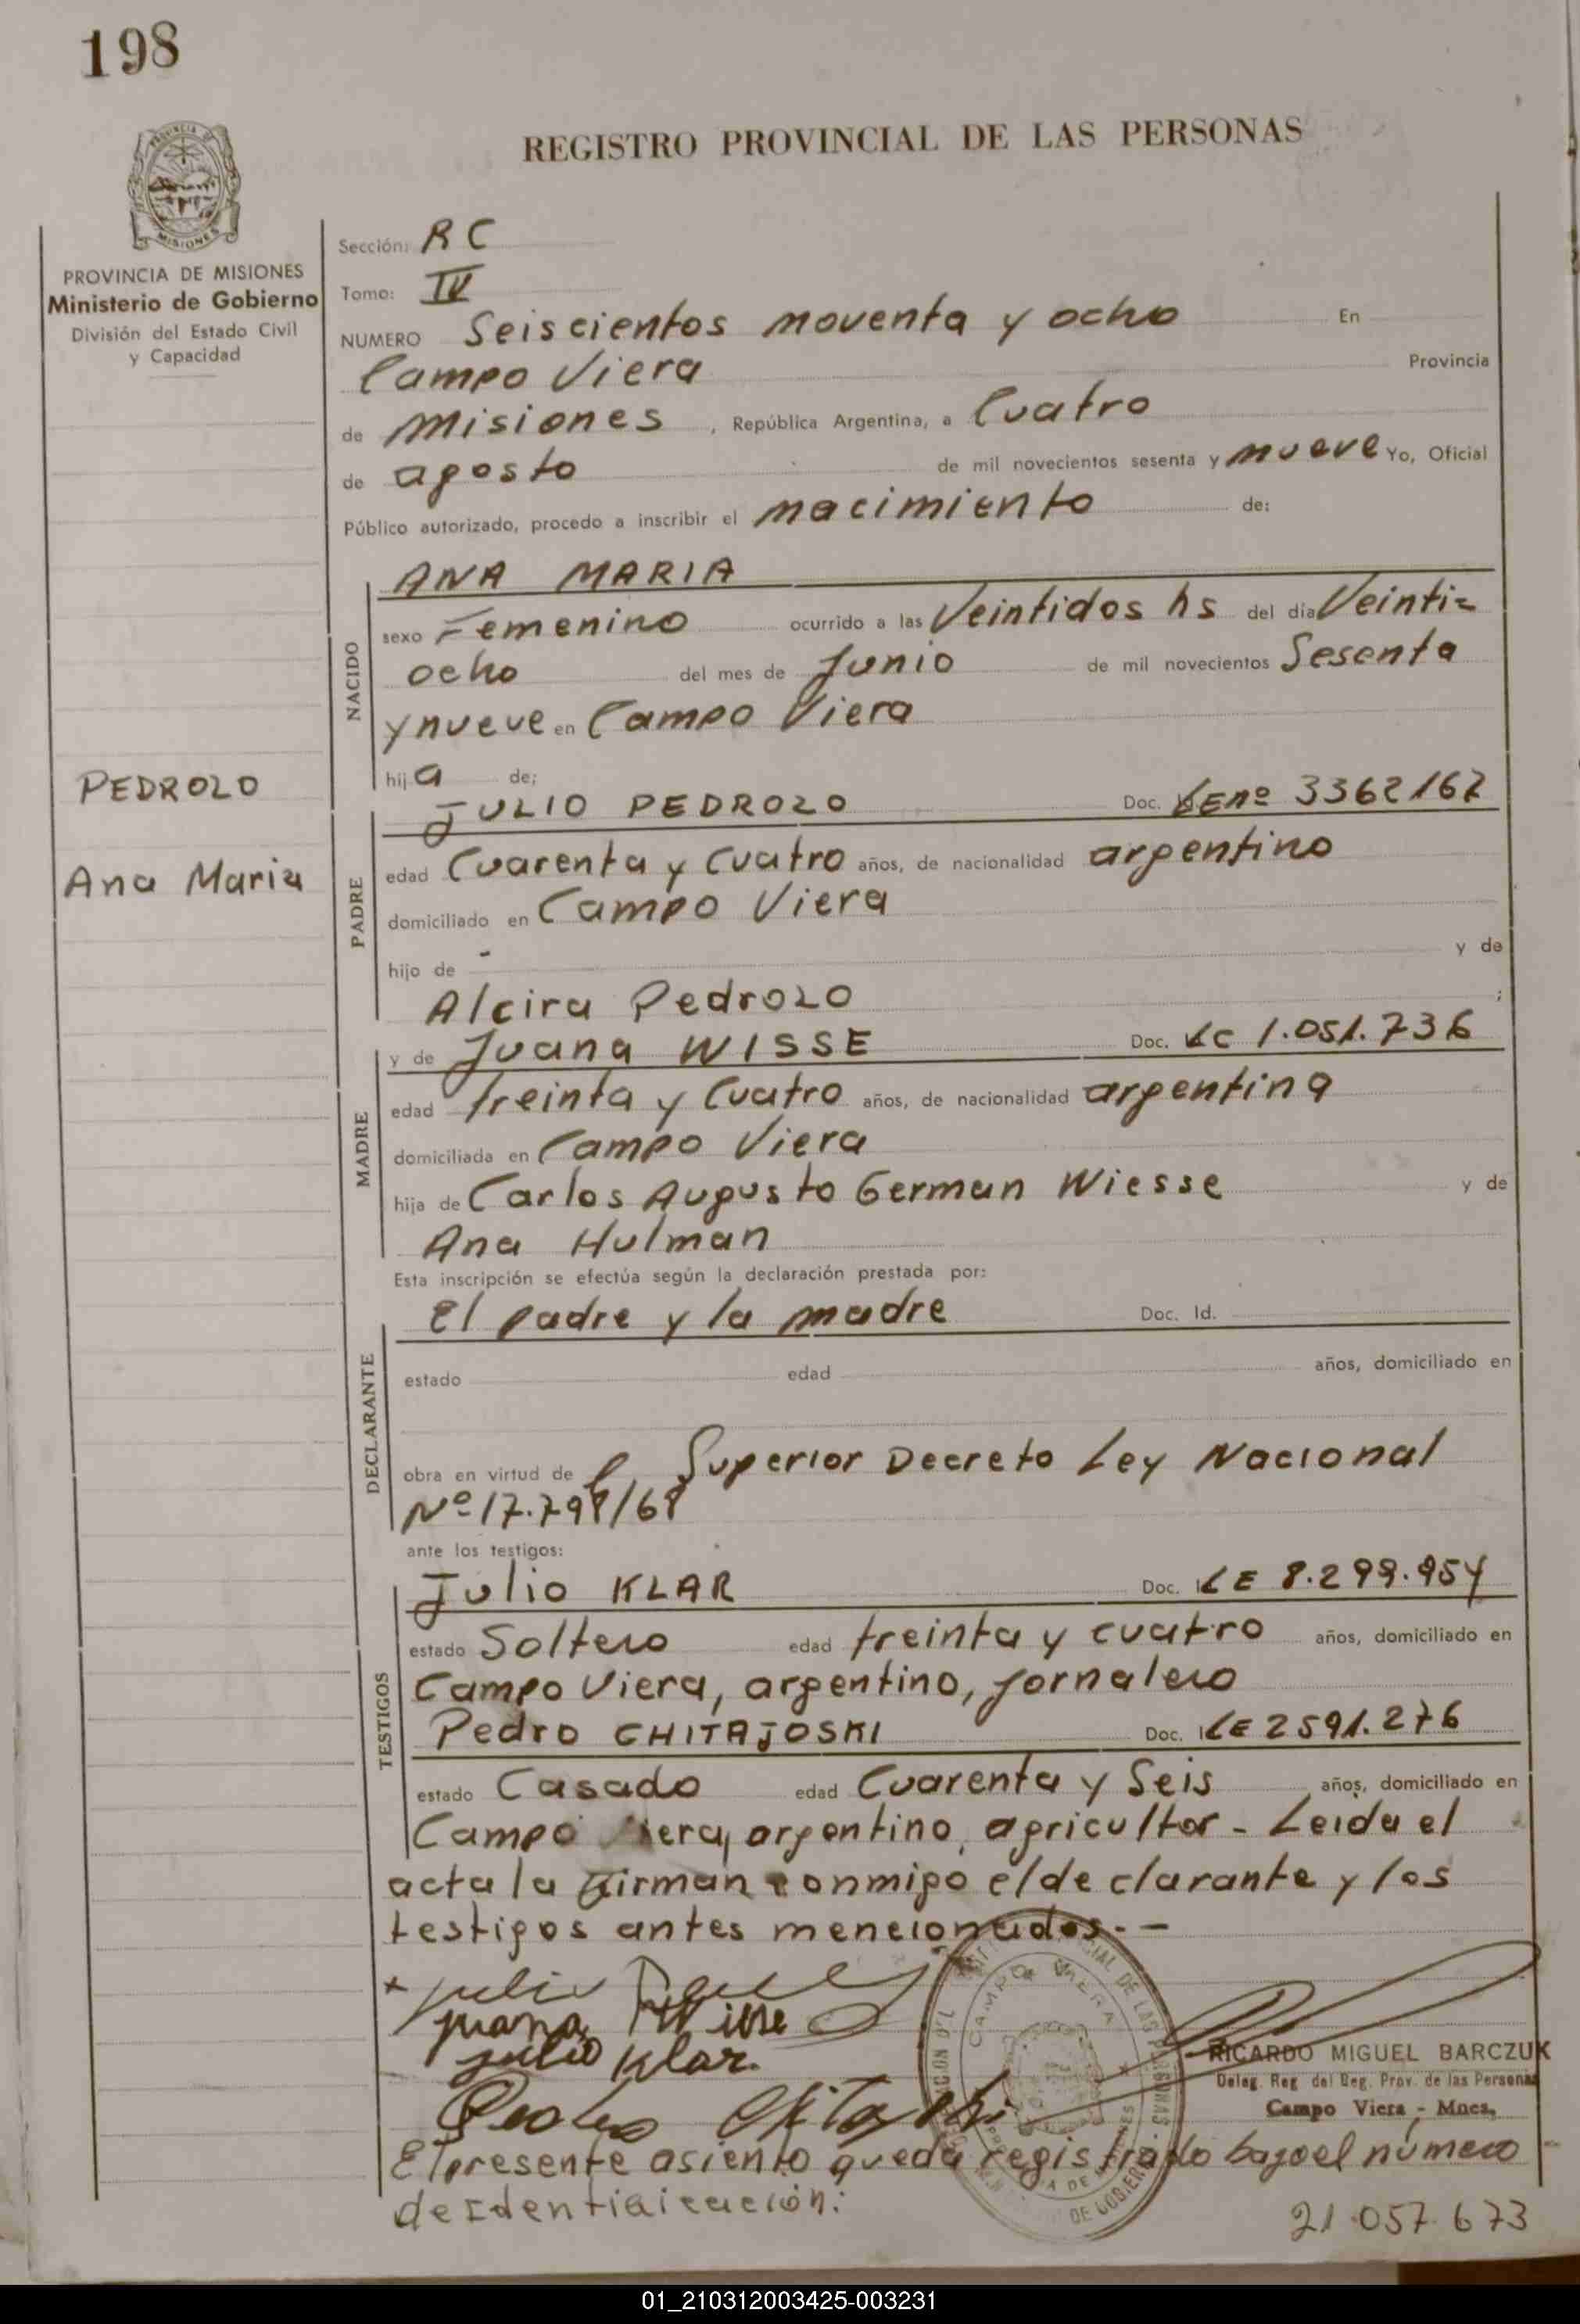 198
REGISTRO PROVINCIAL DE LAS PERSONAS
PROVINCIA DE
MISIONES
PROVINCIA DE MISIONES
Ministerio de Gobierno
División del Estado Civil
y Capacidad
PEDROZO
Ana Maria
Sección: RC
Tomo: IV
NUMERO Seiscientos noventa y ocho En
Campo Viera Provincia
de Misiones, República Argentina, a Cuatro
de agosto de mil novecientos sesenta y nueve Yo, Oficial
Público autorizado, procedo a inscribir el nacimiento de:
NACIDO
ANA MARIA
sexo Femenino ocurrido a las Veintidos hs del día Veinti=
ocho del mes de Junio de mil novecientos Sesenta
y nueve en Campo Viera
hija de;
PADRE
JULIO PEDROZO Doc. LE nº 3362162
edad Cuarenta y Cuatro años, de nacionalidad argentino
domiciliado en Campo Viera
hijo de - y de
Alcira Pedrozo ;
MADRE
y de Juana WISSE Doc. LC 1.051.736
edad treinta y Cuatro años, de nacionalidad argentina
domiciliada en Campo Viera
hija de Carlos Augusto German Wiesse y de
Ana Hulman
Esta inscripción se efectúa según la declaración prestada por:
DECLARANTE
El padre y la madre Doc. Id.
estado edad años, domiciliado en
obra en virtud de Superior Decreto Ley Nacional
Nº 17.798/68
ante los testigos:
TESTIGOS
Julio KLAR Doc. LE 8.299.954
estado Soltero edad treinta y cuatro años, domiciliado en
Campo Viera, argentino, jornalero
Pedro CHITAJOSKI Doc. LE 2591.276
estado Casado edad Cuarenta y Seis años, domiciliado en
Campo Viera, argentino, agricultor - Leida el
acta la firman conmigo el declarante y los
testigos antes mencionados. -
Juana Wisse
Julio Klar.
Pedro
CAMPO VIERA
RICARDO MIGUEL BARCZUK
Deleg. Reg. del Reg. Prov. de las Personas
Campo Viera - Mnes.
El presente asiento queda registrado bajo el número
de Identificación: 21.057.673
01_210312003425-003231